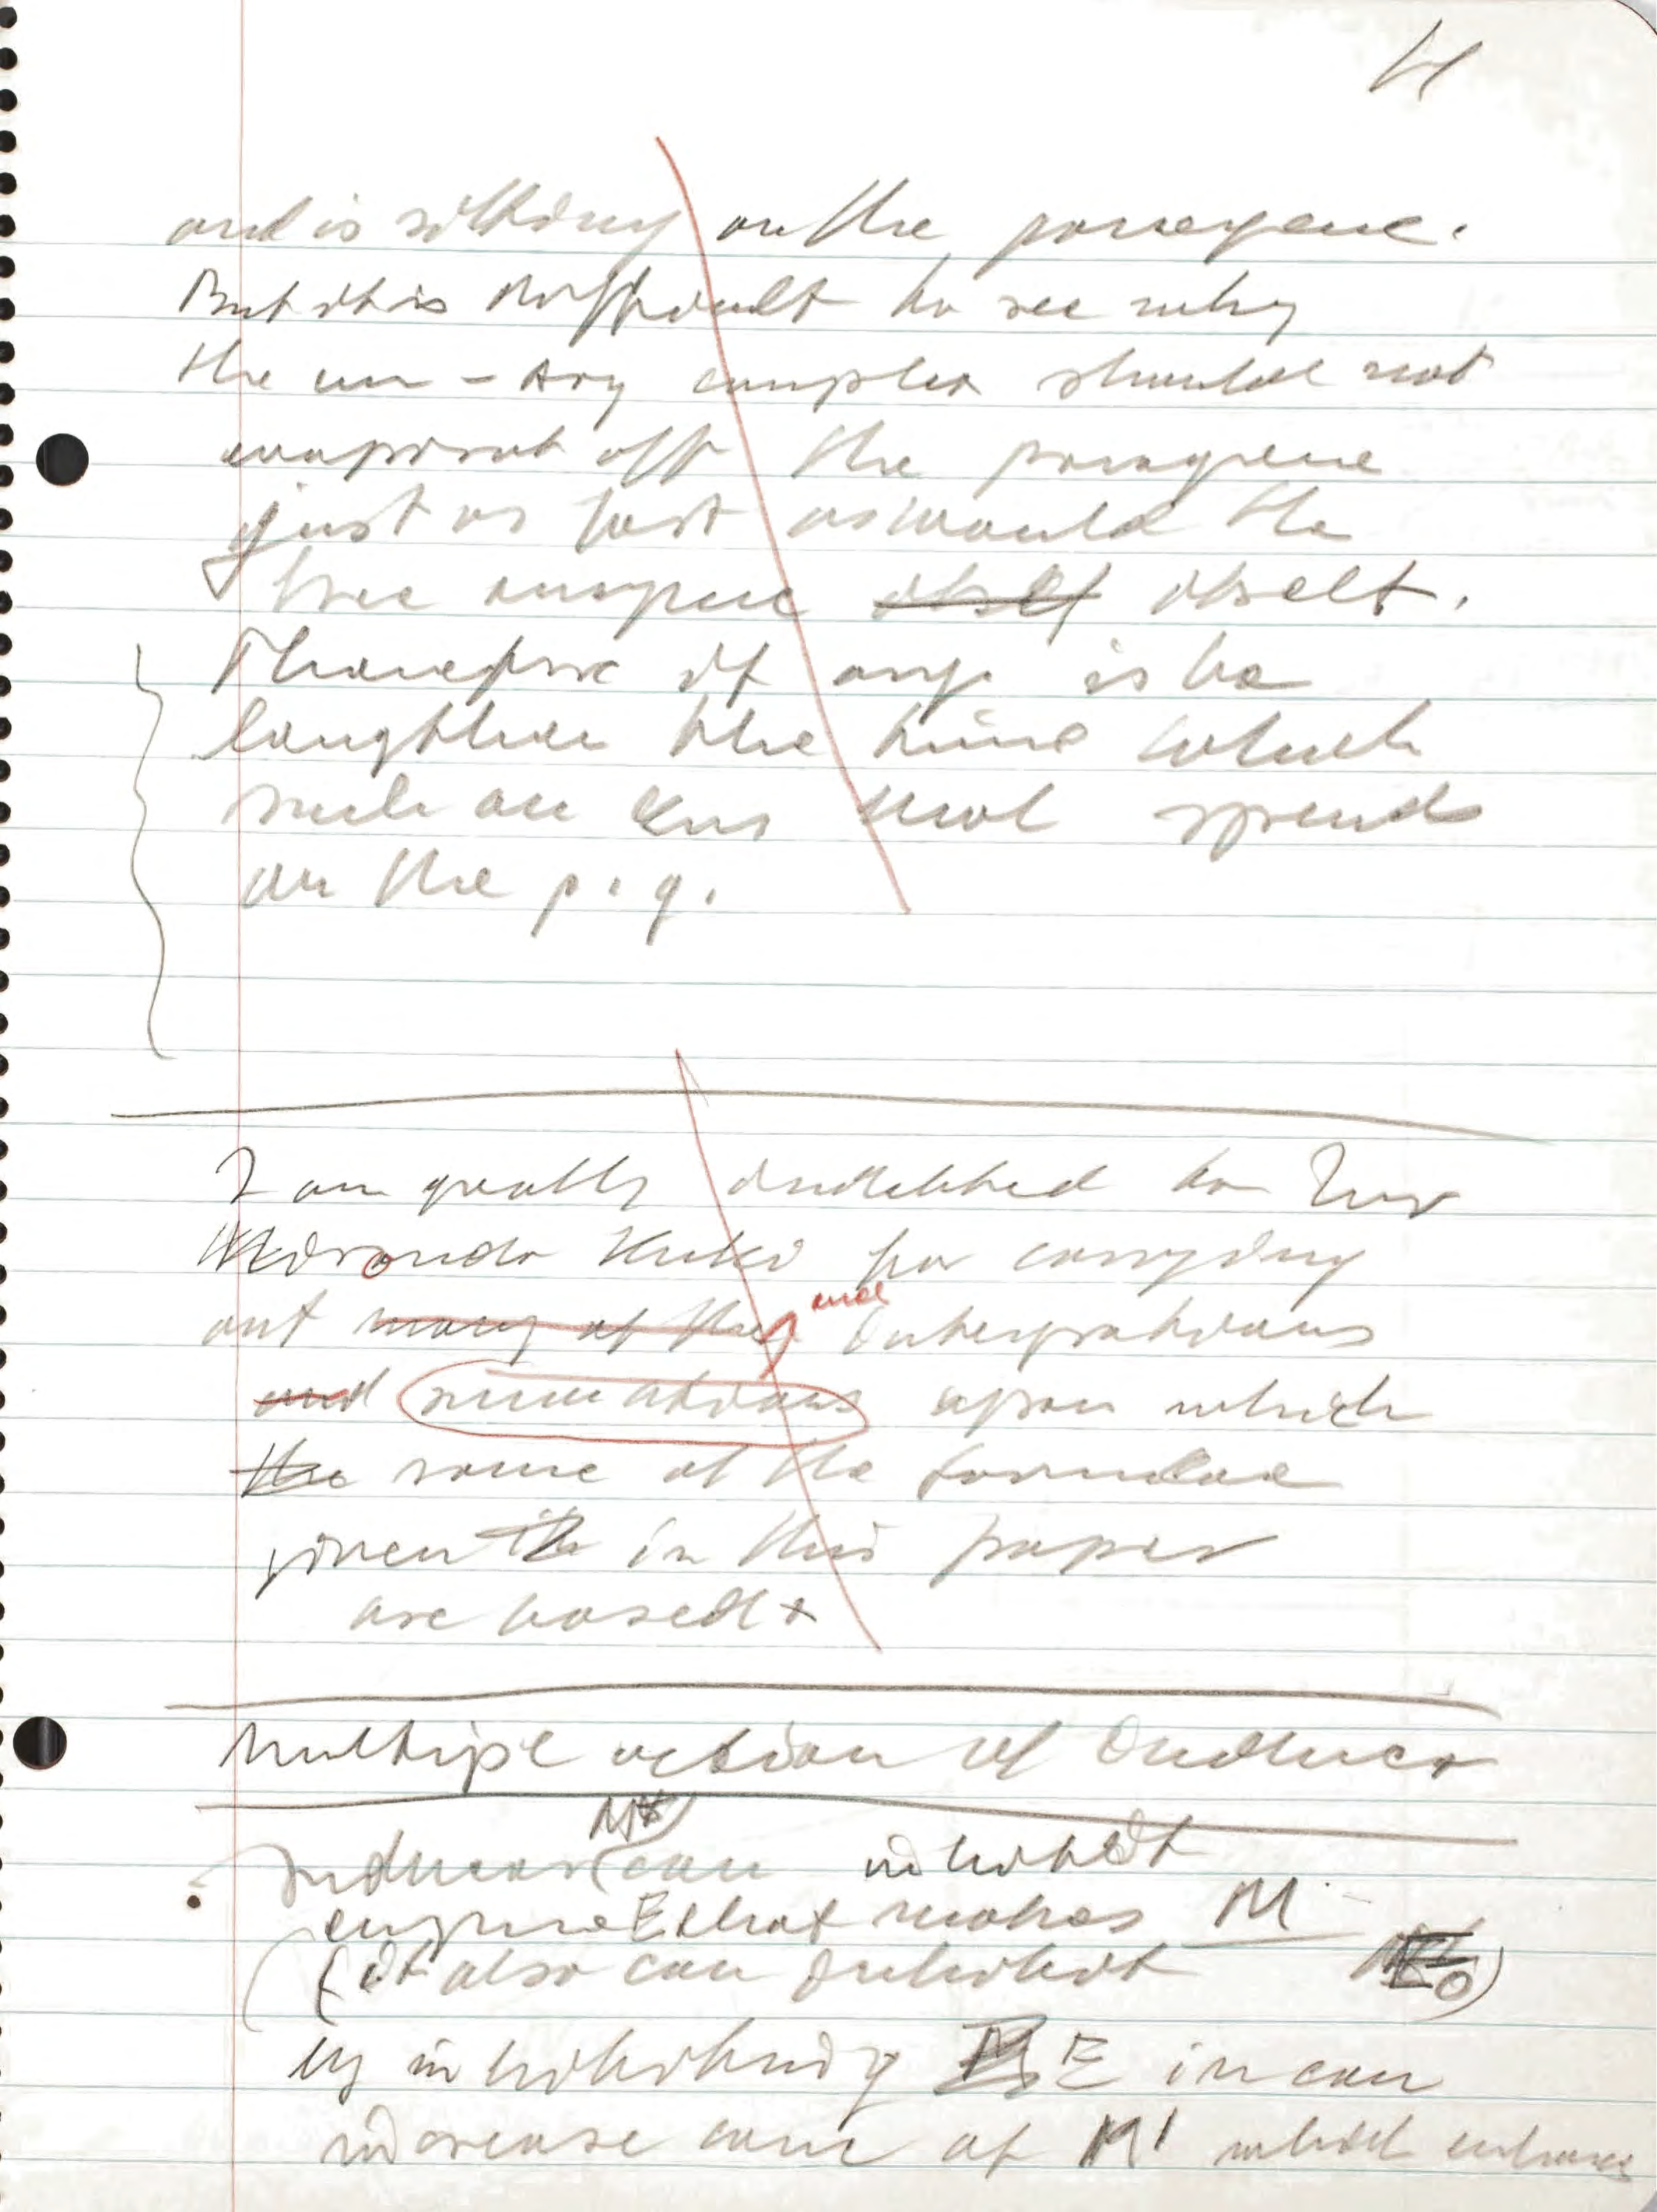 and is sitting on the paragene.
But it is difficult to see why
the en - arg complex should not
evaporat off the paragene
just as fast as would the
free enzyme itself itself.
Therefore if is to
lengthen the time which
such an mol spends
on the p. g.
I am greatly indebted to
for carrying
out many of the and integrations
and summations upon which
the some of the formulae
given in this paper
are based
Multiple action of Inducer
Inducer can inhibit
enzyme E that makes M
(it also can inhibit E₀)
by inhibiting E in can
increase conc of M' which enhances